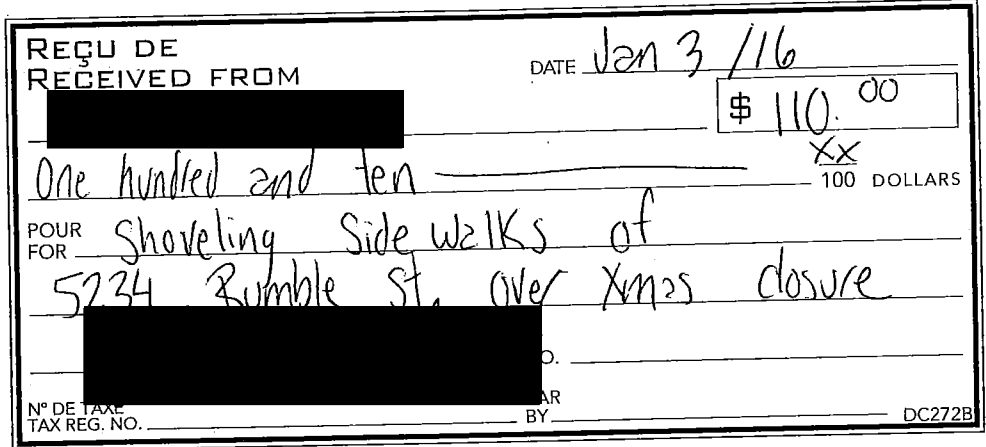 REÇU DE
RECEIVED FROM
DATE Jan 3 /16
$ 110.00
One hundred and ten XX/100 DOLLARS
POUR
FOR Shoveling Side Walks of
5234 Rumble St. over Xmas closure
O.
N° DE TAXE
TAX REG. NO.
AR
BY
DC272B